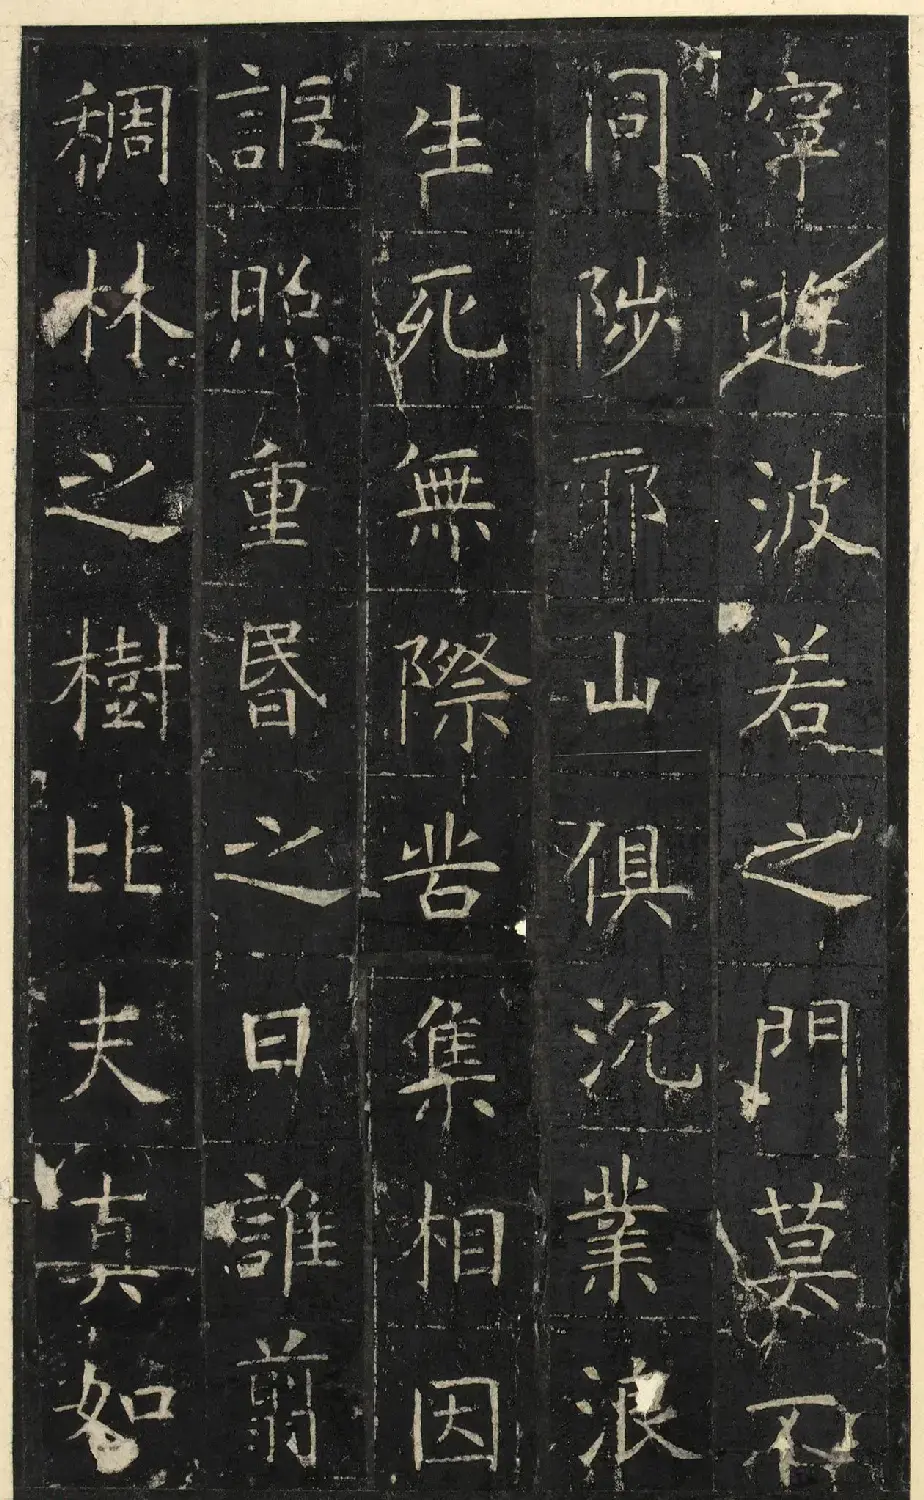 寧遊波若之門莫不
同陟耶山俱沉業浪
生死無際苦集相因
詎照重昬之日誰翦
稠林之樹比夫真如